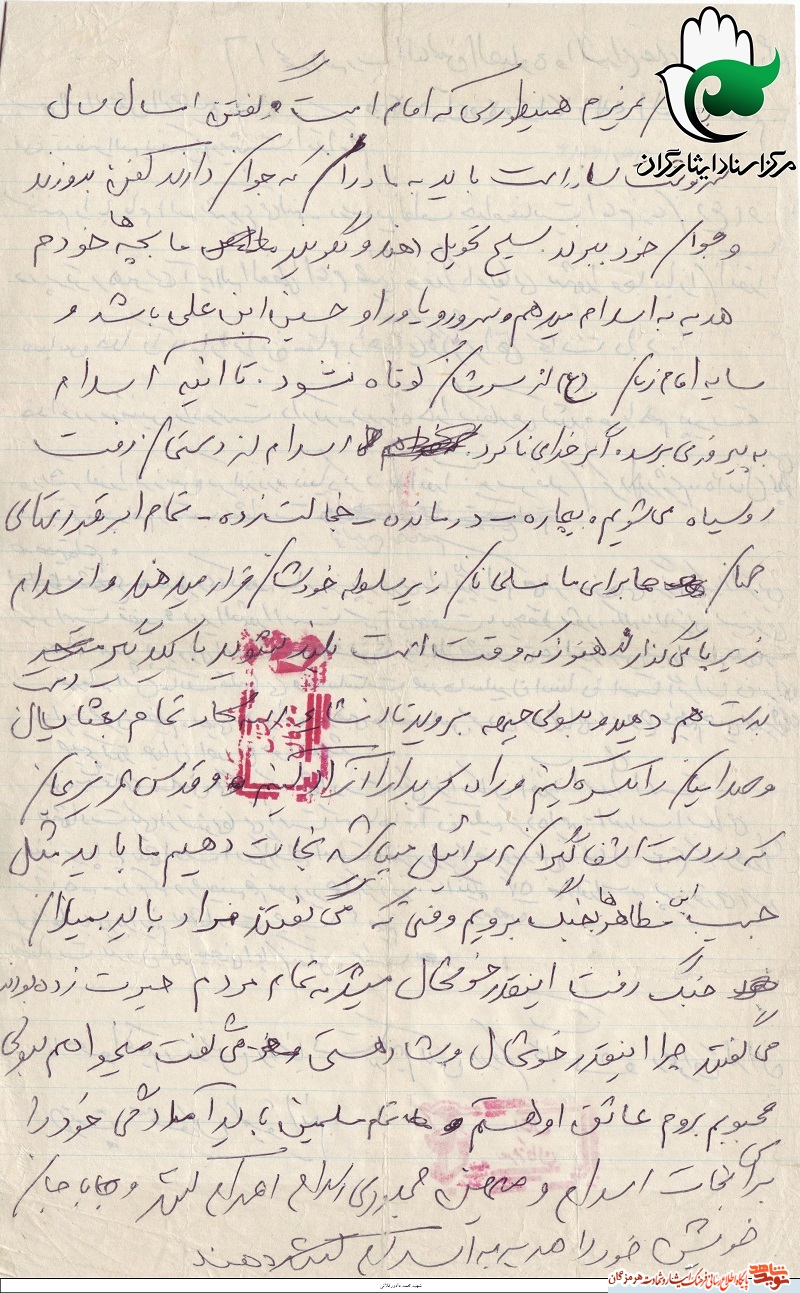 مرکز اسناد ایثارگران
عزیزم همینطوری که امام امت گفتن امسال سال
سرنوشت ساز است باید به مادران که جوان دارند کفن بدوزند
و جوان خود ببرند بسیج تحویل دهند و بگویند ما بچه ها خودم
هدیه به اسلام میدهم و سرور و یاور او حسین ابن علی باشد و
سایه امام زمان (عج) از سرشان کوتاه نشود. تا اینکه اسلام
به پیروزی برسد. اگر خدای ناکرد اسلام از دستمان رفت
روسیاه می شویم، بیچاره - درمانده - خجالت زده - تمام ابرقدرتهای
جهان ما برای ما مسلمانان زیر سلطه خودشان قرار میدهند و اسلام
زیر پا می گذارند هنوز که وقت است بلند بشوید با یکدیگر
دست بدست هم دهید و بسوی جبهه بروید تا انشاء الله کار تمام بعثیان
و صدامیان را یکسره کنیم و راه کربلا را آزاد کنیم و قدس عزیزمان
که در دست اشغالگران اسرائیل میباشد نجات دهیم ما باید مثل
حبیب ابن مظاهرها بجنگ برویم وقتی که می گفتند فردا باید بمیدان
جنگ رفت اینقدر خوشحال میشد که تمام مردم حیرت زده بودند
می گفتند چرا اینقدر خوشحال و شاد هستی می گفت میخواهم بسوی
محبوبم بروم عاشق او هستم تمام مسلمین باید آمادگی خود را
برای نجات اسلام و میهن جمهوری اسلام اعلام کنند و با جان
خویش خود را هدیه به اسلام کنند
شهید محمد دادورفلاتی
نوید شاهد
پایگاه اطلاع رسانی فرهنگ ایثار و شهادت هرمزگان